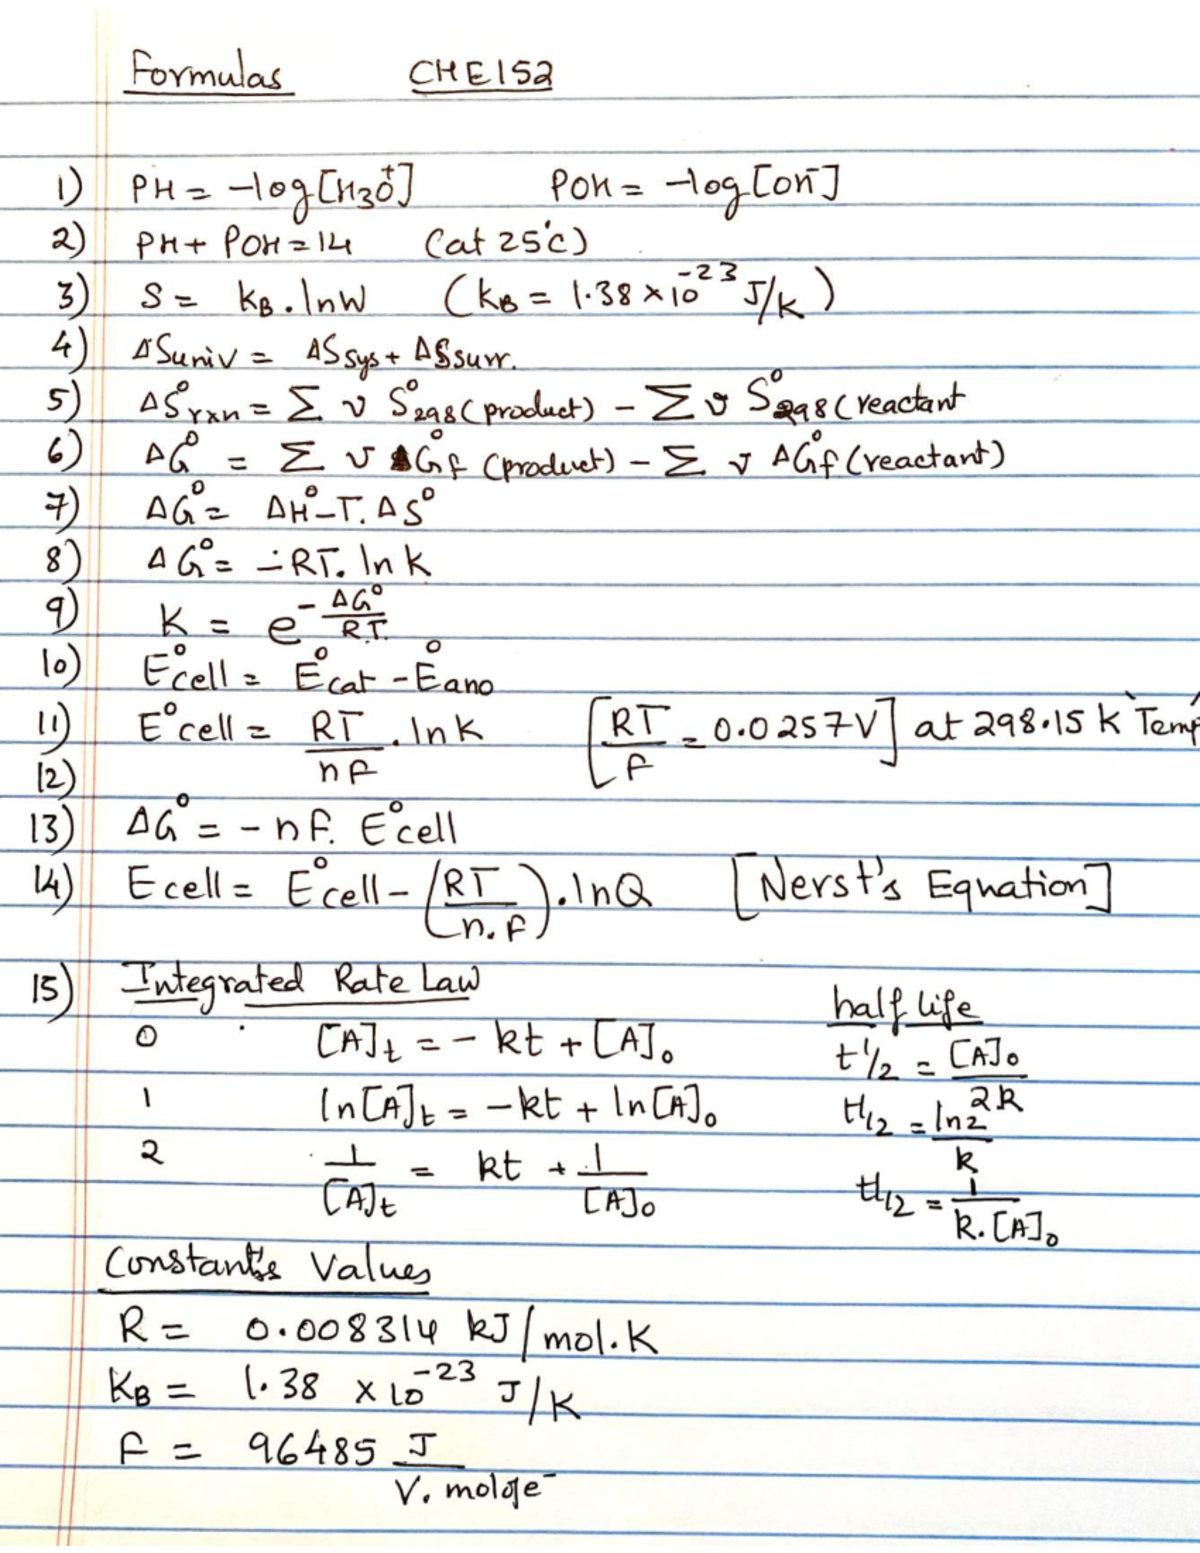 Formulas CHE152
1) PH = -log[H3O+] POH = -log[OH-]
2) PH + POH = 14 (at 25°C)
3) S = kB . lnW (kB = 1.38 × 10^-23 J/K)
4) ΔSuniv = ΔSsys + ΔSsurr.
5) ΔS°rxn = Σ ν S°298 (product) - Σ ν S°298 (reactant
6) ΔG° = Σ ν ΔG°f (product) - Σ ν ΔG°f (reactant)
7) ΔG° = ΔH° - T. ΔS°
8) ΔG° = -RT. ln K
9) K = e^-ΔG°/R.T.
10) E°cell = E°cat - E°ano
11) E°cell = RT/nF . lnK [RT/F = 0.0257V] at 298.15 K Temp
12)
13) ΔG° = - nF. E°cell
14) Ecell = E°cell - (RT/n.F) . lnQ [Nerst's Equation]
15) Integrated Rate Law half life
0 [A]t = - kt + [A]0 t1/2 = [A]0/2k
1 ln[A]t = -kt + ln[A]0 t1/2 = ln2/k
2 1/[A]t = kt + 1/[A]0 t1/2 = 1/k.[A]0
Constant's Values
R = 0.008314 kJ/mol.K
KB = 1.38 × 10^-23 J/K
F = 96485 J/V. mol of e-